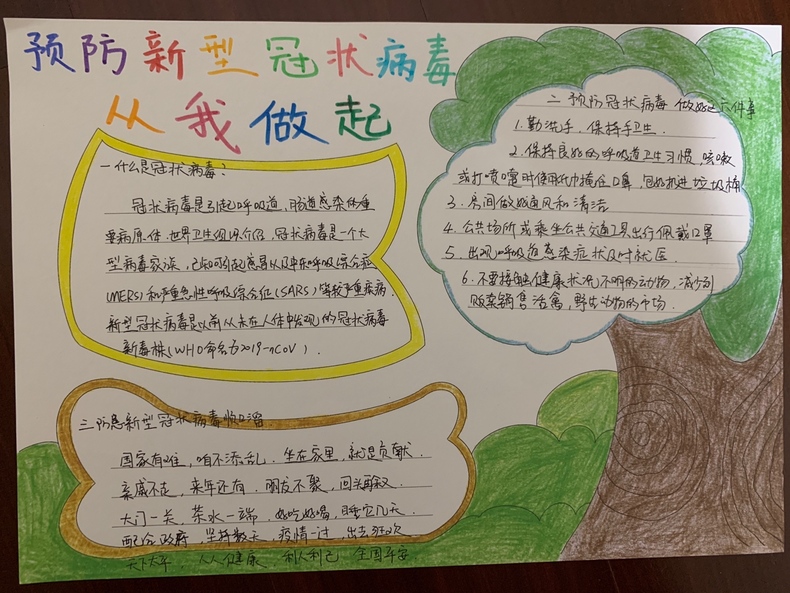 预防新型冠状病毒
从我做起
一什么是冠状病毒?
冠状病毒是引起呼吸道,肠道感染的重
要病原体.世界卫生组织介绍,冠状病毒是一个大
型病毒家族,已知可引起感冒以及中东呼吸综合症
(MERS)和严重急性呼吸综合征(SARS)等较严重疾病.
新型冠状病毒是以前从未在人体中发现的冠状病毒
新毒株(WHO命名为2019-nCoV).
二 预防冠状病毒 做好这六件事
1.勤洗手、保持手卫生.
2.保持良好的呼吸道卫生习惯,咳嗽
或打喷嚏时使用纸巾掩住口鼻,包好扔进垃圾桶
3.房间做好通风和清洁
4.公共场所或乘坐公共交通工具出行佩戴口罩
5.出现呼吸道感染症状及时就医
6.不要接触健康状况不明的动物,减少到
贩卖销售活禽,野生动物的市场.
三防患新型冠状病毒顺口溜.
国家有难,咱不添乱.坐在家里,就是贡献.
亲戚不走,来年还有.朋友不聚,回头再叙.
大门一关,茶水一端.好吃好喝,睡它几天
配合政府,坚持数天,疫情一过,出去狂欢
天下太平,人人健康,利人利己,全国平安